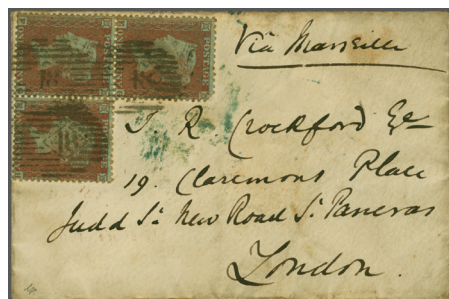 Via Marseille
T. R. Crockford Esq
19. Claremont Place
Judd St. New Road St. Pancras
London.